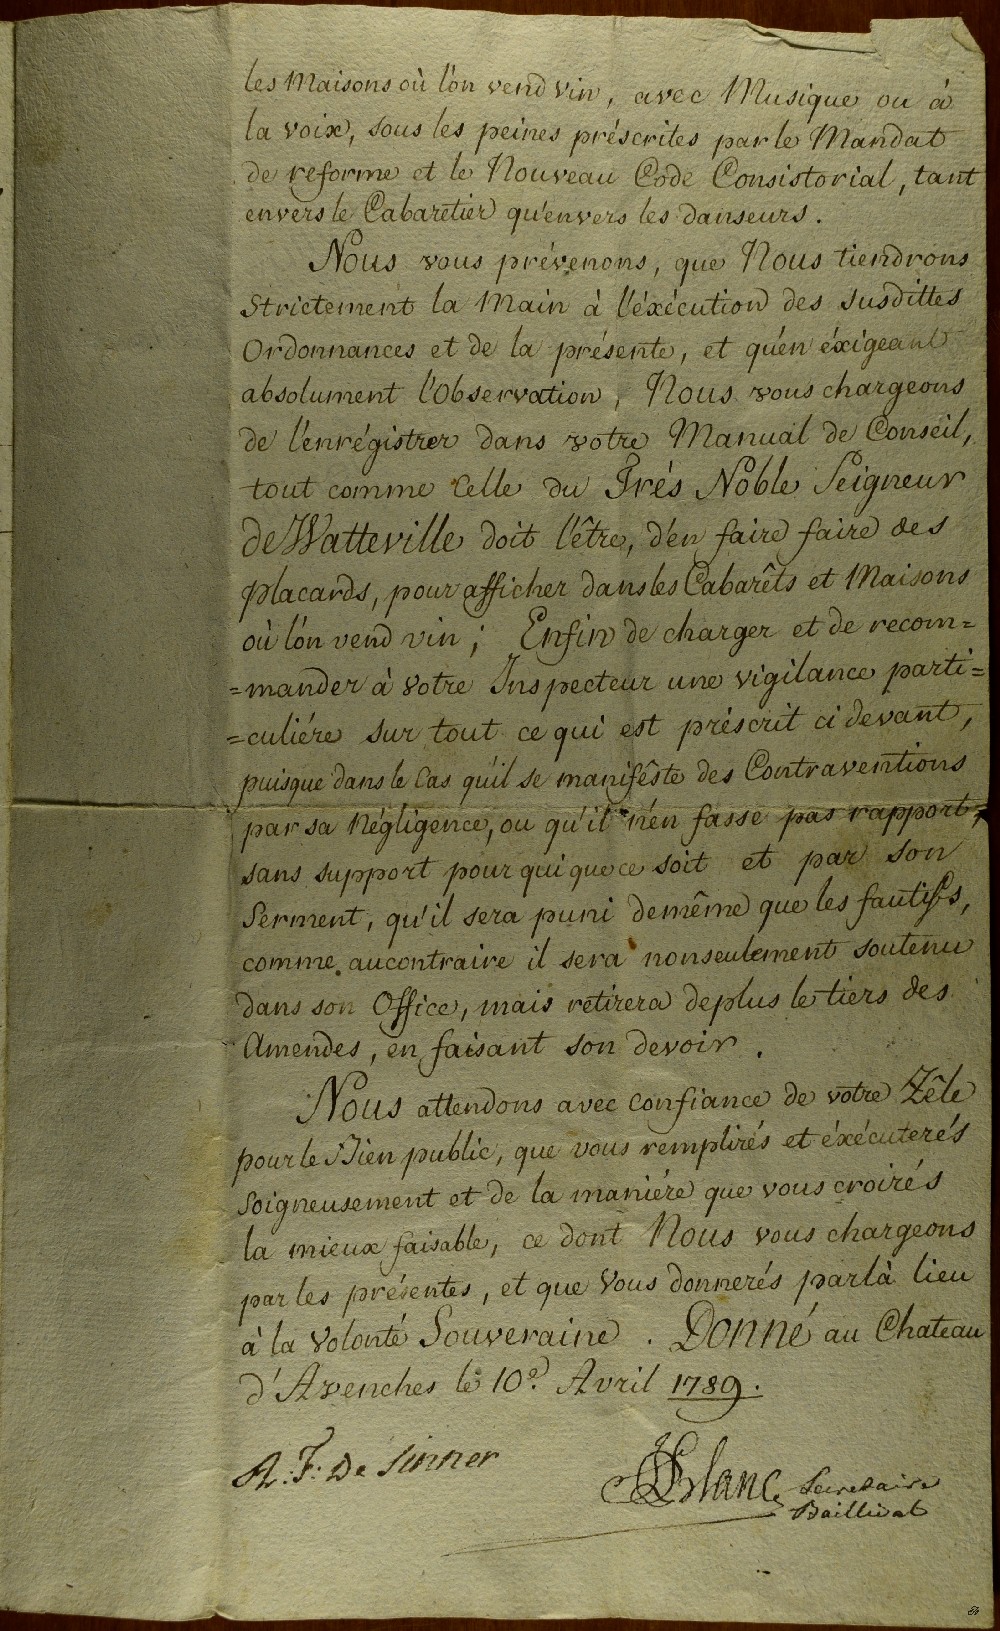 les Maisons où l'on vend vin, avec Musique ou à
la voix, sous les peines préscrites par le Mandat
de reforme et le Nouveau Code Consistorial, tant
envers le Cabaretier qu'envers les danseurs.
Nous vous prévenons, que Nous tiendrons
Strictement la Main à l'éxécution des susdittes
Ordonnances et de la présente, et qu'en éxigeant
absolument l'Observation, Nous vous chargeons
de l'enrégistrer dans votre Manual de Conseil,
tout comme Celle du Trés Noble Seigneur
de Watteville doit l'être, d'en faire faire des
placards, pour afficher dans les Cabarêts et Maisons
où l'on vend vin; Enfin de charger et de recom=
=mander à votre Inspecteur une vigilance parti=
=culiére sur tout ce qui est préscrit ci devant,
puisque dans le Cas qu'il se manifêste des Contraventions
par sa Négligence, ou qu'il n'én fasse pas rapport,
sans support pour qui que ce soit et par son
Serment, qu'il sera puni de même que les fautifs,
comme au contraire il sera non seulement soutenu
dans son Office, mais retirera de plus le tiers des
Amendes, en faisant son devoir.
Nous attendons avec confiance de votre Zêle
pour le Bien public, que vous remplirés et éxécuterés
Soigneusement et de la maniére que vous croirés
la mieux faisable, ce dont Nous vous chargeons
par les présentes, et que Vous donnerés par là lieu
à la Volonté Souveraine. Donné au Chateau
d'Avenches le 10e. Avril 1789.
A: F: De Sinner
Blanc Secretaire
Baillival